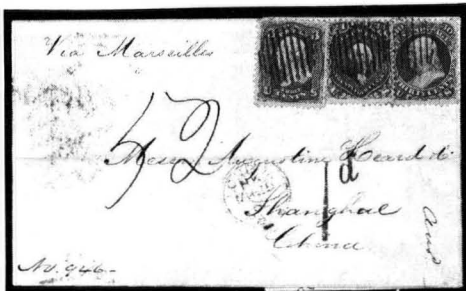 Via Marseilles
52
Messrs Augustine Heard &
1d
Shanghae
China
No. 946-